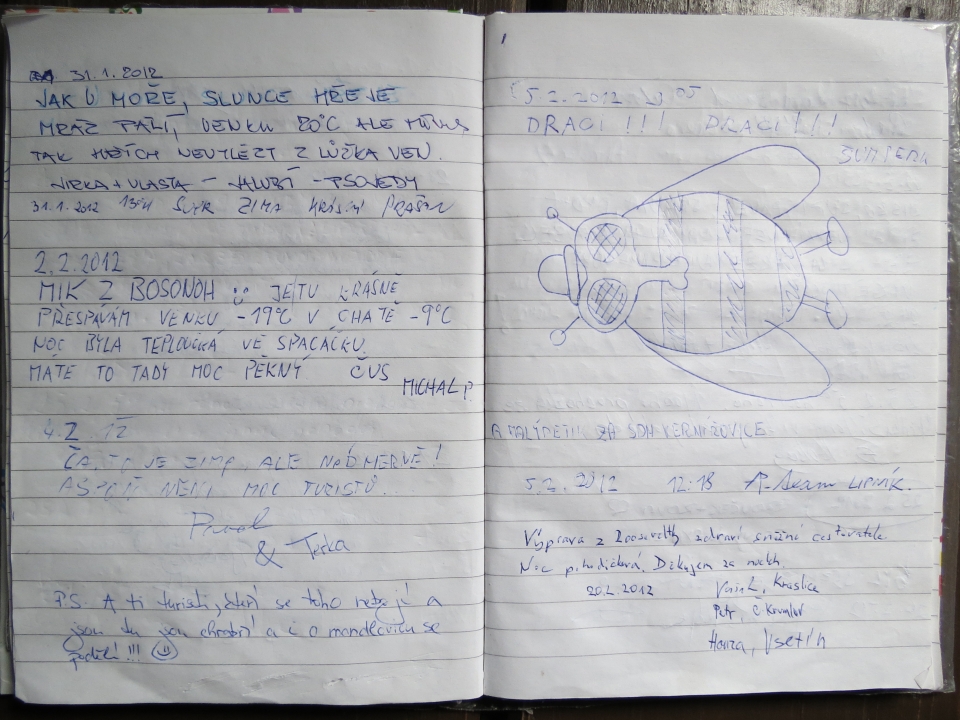 31.1.2012
JAK U MOŘE, SLUNCE HŘEJE
MRÁZ PÁLÍ, VENKU 20°C ALE MÍNUS
TAK NEVYLÉZT Z LŮŽKA VEN.
JIRKA + VLASTA - - PSOVEDY
31.1.2012 SUPR ZIMA KRÁSNÝ
2.2.2012
MIK Z BOSONOH :: JE TU KRÁSNĚ
PŘESPÁVÁM VENKU -19°C V CHATĚ -9°C
NOC BYLA TEPLOUČKÁ VE SPACÁČKU.
MÁTE TO TADY MOC PĚKNÝ ČUS
MICHAL P.
4.2.12
JE ZIMA ALE NÁDHERNĚ!
ASPOŇ NENÍ MOC TURISTŮ...
Pavel
& Terka
P.S. A ti turisti, kteří se toho nebojí a
jsou tu jsou chrabří a i o mandlovicu se
podělí!!!
5.2.2012
DRACI!!! DRACI!!!
ŠUMPERK
A MALÝ DETIK ZA SDH VERNÍŘOVICE
5.2.2012 12:18 LIPNÍK.
Výprava z zdraví sněžné cestovatele
Noc pohodičková. Děkujem za nocleh.
20.2.2012 Kraslice
Petr, Č Krumlov
Honza, Vsetín